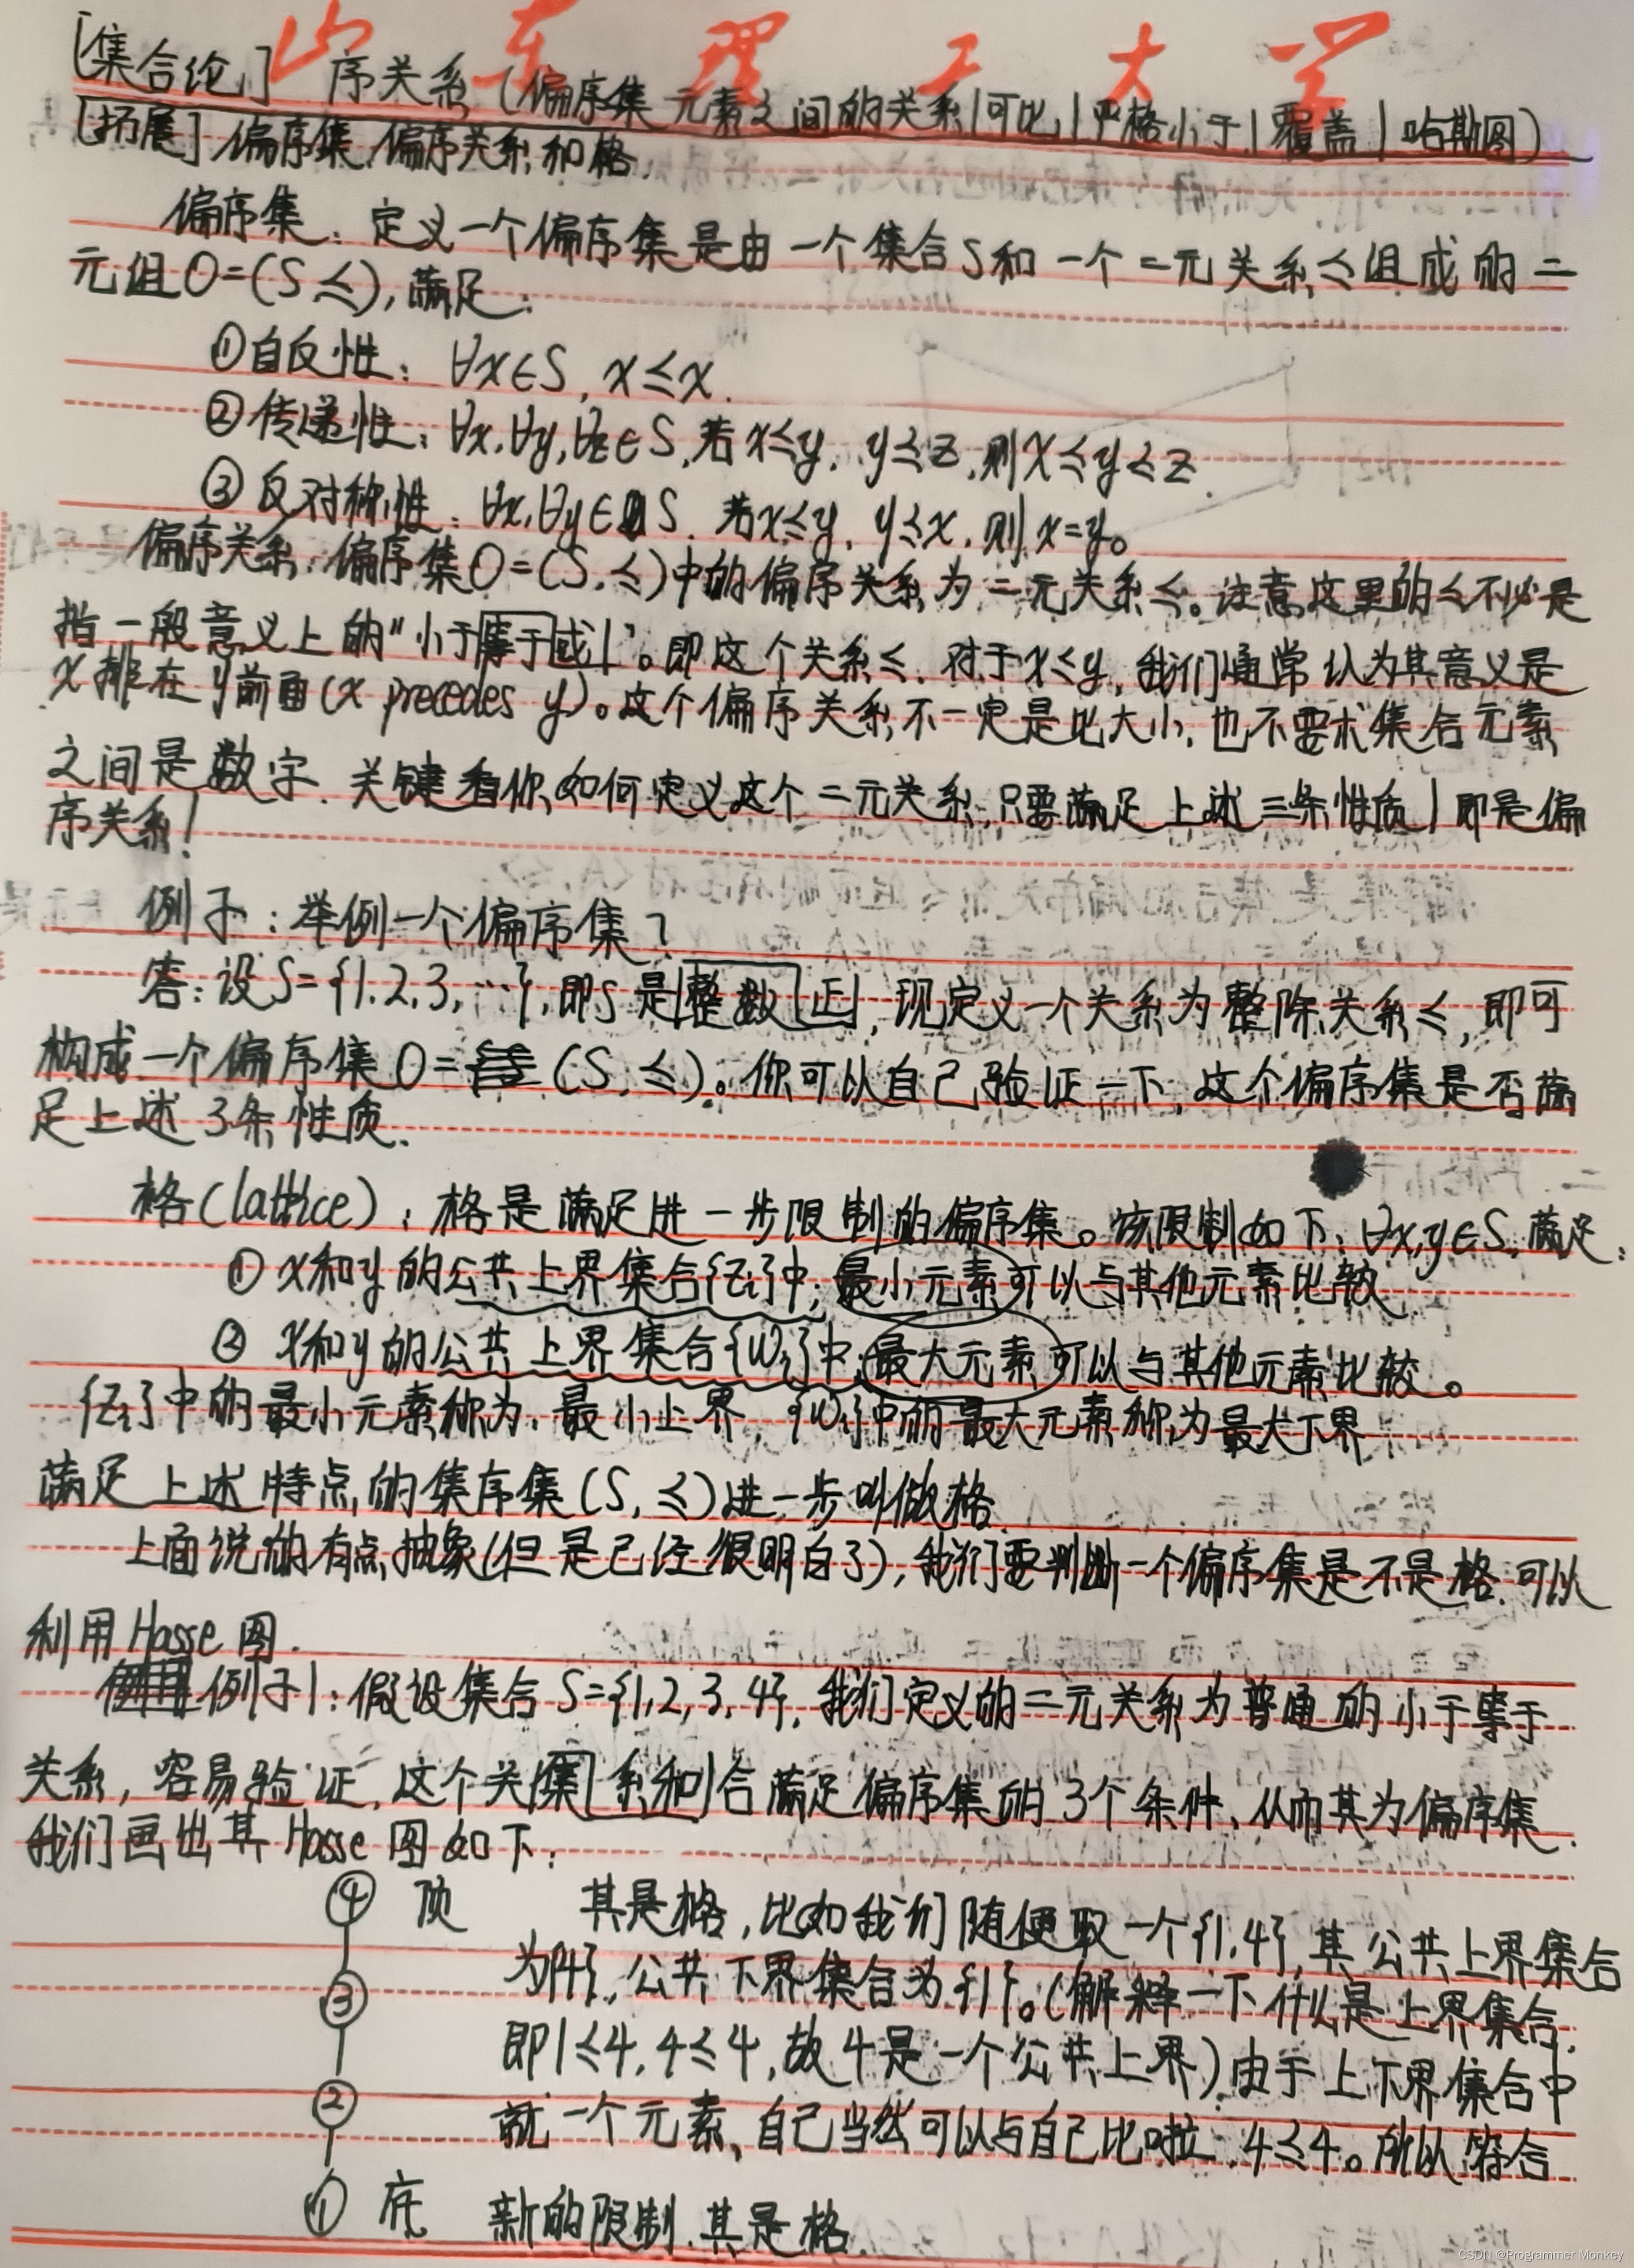 山东理工大学
[集合论] 序关系 (偏序集元素之间的关系|可比|严格小于|覆盖|哈斯图)
[拓展] 偏序集、偏序关系和格.
偏序集: 定义一个偏序集是由一个集合S和一个二元关系≤组成的二
元组O=(S,≤), 满足:
①自反性: ∀x∈S, x≤x.
②传递性: ∀x,∀y,∀z∈S,若x≤y, y≤z,则x≤y≤z.
③反对称性: ∀x,∀y∈S. 若x≤y, y≤x, 则x=y。
偏序关系: 偏序集O=(S,≤)中的偏序关系为二元关系≤。注意这里的≤不必是
指一般意义上的"小于等于或"。即这个关系≤, 对于x≤y, 我们通常认为其意义是
x排在y前面(x precedes y)。这个偏序关系不一定是比大小, 也不要求集合元素
之间是数字. 关键看你如何定义这个二元关系,只要满足上述三条性质,即是偏
序关系!
例子: 举例一个偏序集?
答: 设S={1,2,3,…}, 即S是整数正, 现定义一个关系为整除关系≤, 即可
构成一个偏序集O=(S,≤)。你可以自己验证一下, 这个偏序集是否满
足上述3条性质.
格(lattice): 格是满足进一步限制的偏序集。该限制如下: ∀x,y∈S,满足:
① x和y的公共上界集合{zi}中, 最小元素可以与其他元素比较
② x和y的公共上界集合{wi}中,最大元素可以与其他元素比较。
{zi}中的最小元素称为: 最小上界, {wi}中的最大元素称为最大下界
满足上述特点的集序集(S,≤)进一步叫做格.
上面说的有点抽象(但是已经很明白了), 我们要判断一个偏序集是不是格.可以
利用Hasse图.
例子1: 假设集合 S={1,2,3,4}, 我们定义的二元关系为普通的小于等于
关系, 容易验证, 这个关集系和合满足偏序集的3个条件, 从而其为偏序集.
我们画出其Hasse图如下:
④ 顶 其是格, 比如我们随便取一个{1,4}, 其公共上界集合
为{4}, 公共下界集合为{1}。(解释一下什么是上界集合,
③
即1≤4, 4≤4, 故4是一个公共上界). 由于上下界集合中
② 就一个元素, 自己当然可以与自己比啦, 4≤4。所以符合
① 底 新的限制, 其是格.
CSDN @Programmer Monkey